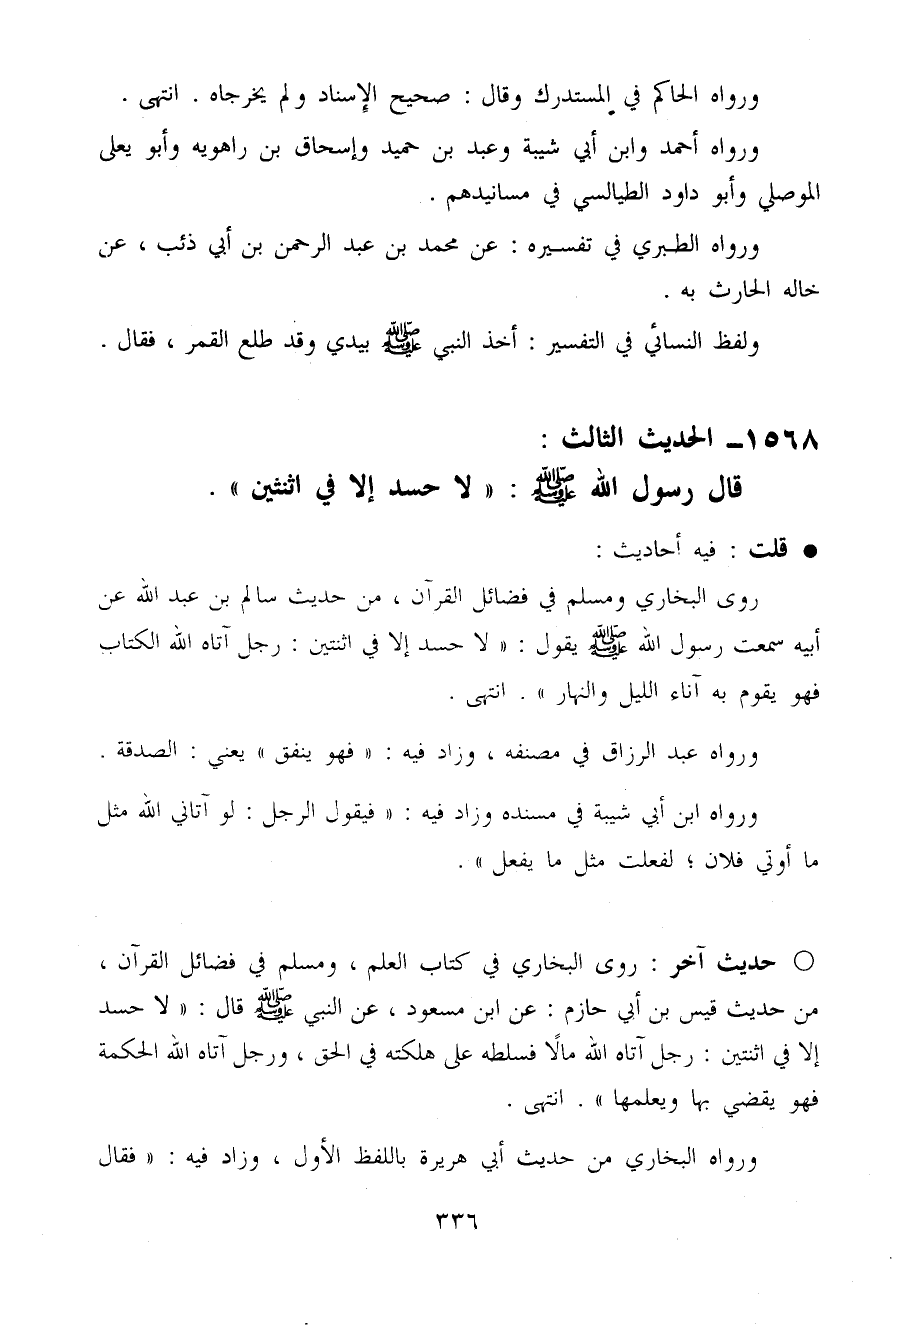 ورواه الحاكم في المستدرك وقال : صحيح الإسناد ولم يخرجاه . انتهى .
ورواه أحمد وابن أبي شيبة وعبد بن حميد وإسحاق بن راهويه وأبو يعلى
الموصلي وأبو داود الطيالسي في مسانيدهم .
ورواه الطبري في تفسيره : عن محمد بن عبد الرحمن بن أبي ذئب ، عن
خاله الحارث به .
ولفظ النسائي في التفسير : أخذ النبي ﷺ بيدي وقد طلع القمر ، فقال .
١٥٦٨ـ الحديث الثالث :
قال رسول الله ﷺ : « لا حسد إلا في اثنثين » .
● قلت : فيه أحاديث :
روى البخاري ومسلم في فضائل القرآن ، من حديث سالم بن عبد الله عن
أبيه سمعت رسول الله ﷺ يقول : « لا حسد إلا في اثنتين : رجل آتاه الله الكتاب
فهو يقوم به آناء الليل والنهار » . انتهى .
ورواه عبد الرزاق في مصنفه ، وزاد فيه : « فهو ينفق » يعني : الصدقة .
ورواه ابن أبي شيبة في مسنده وزاد فيه : « فيقول الرجل : لو آتاني الله مثل
ما أوتي فلان ؛ لفعلت مثل ما يفعل » .
○ حديث آخر : روى البخاري في كتاب العلم ، ومسلم في فضائل القرآن ،
من حديث قيس بن أبي حازم : عن ابن مسعود ، عن النبي ﷺ قال : « لا حسد
إلا في اثنتين : رجل آتاه الله مالًا فسلطه على هلكته في الحق ، ورجل آتاه الله الحكمة
فهو يقضي بها ويعلمها » . انتهى .
ورواه البخاري من حديث أبي هريرة باللفظ الأول ، وزاد فيه : « فقال
٣٣٦